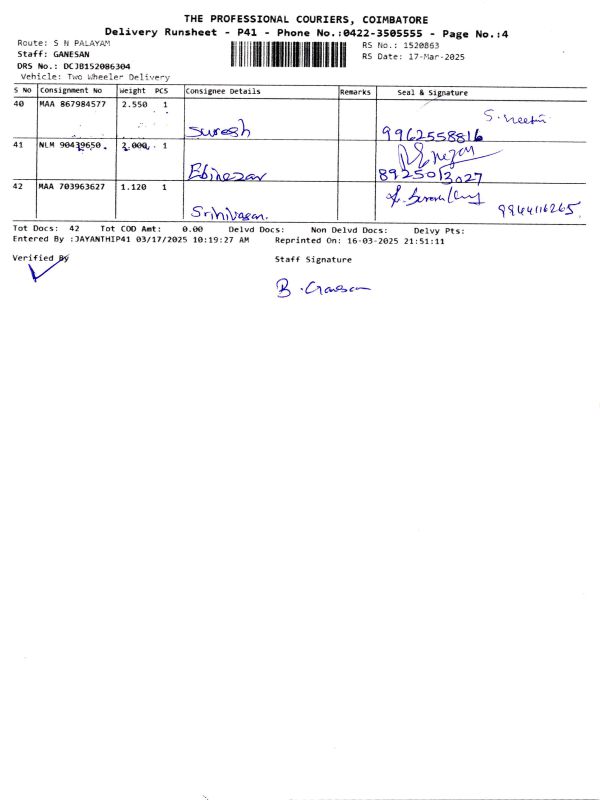 THE PROFESSIONAL COURIERS, COIMBATORE
Delivery Runsheet - P41 - Phone No.:0422-3505555 - Page No.:4
Route: S N PALAYAM
RS No.: 1520863
Staff: GANESAN
RS Date: 17-Mar-2025
DRS No.: DCJB152086304
Vehicle: Two Wheeler Delivery
S No Consignment No Weight PCS Consignee Details Remarks Seal & Signature
40 MAA 867984577 2.550 1
Suresh 9962558816
41 NLM 90439650 2.000 1
Ebinezar 8925013027
42 MAA 703963627 1.120 1
Srinivasan. 9944116265.
Tot Docs: 42 Tot COD Amt: 0.00 Delvd Docs: Non Delvd Docs: Delvy Pts:
Entered By :JAYANTHIP41 03/17/2025 10:19:27 AM Reprinted On: 16-03-2025 21:51:11
Verified By Staff Signature
B. Ganesan